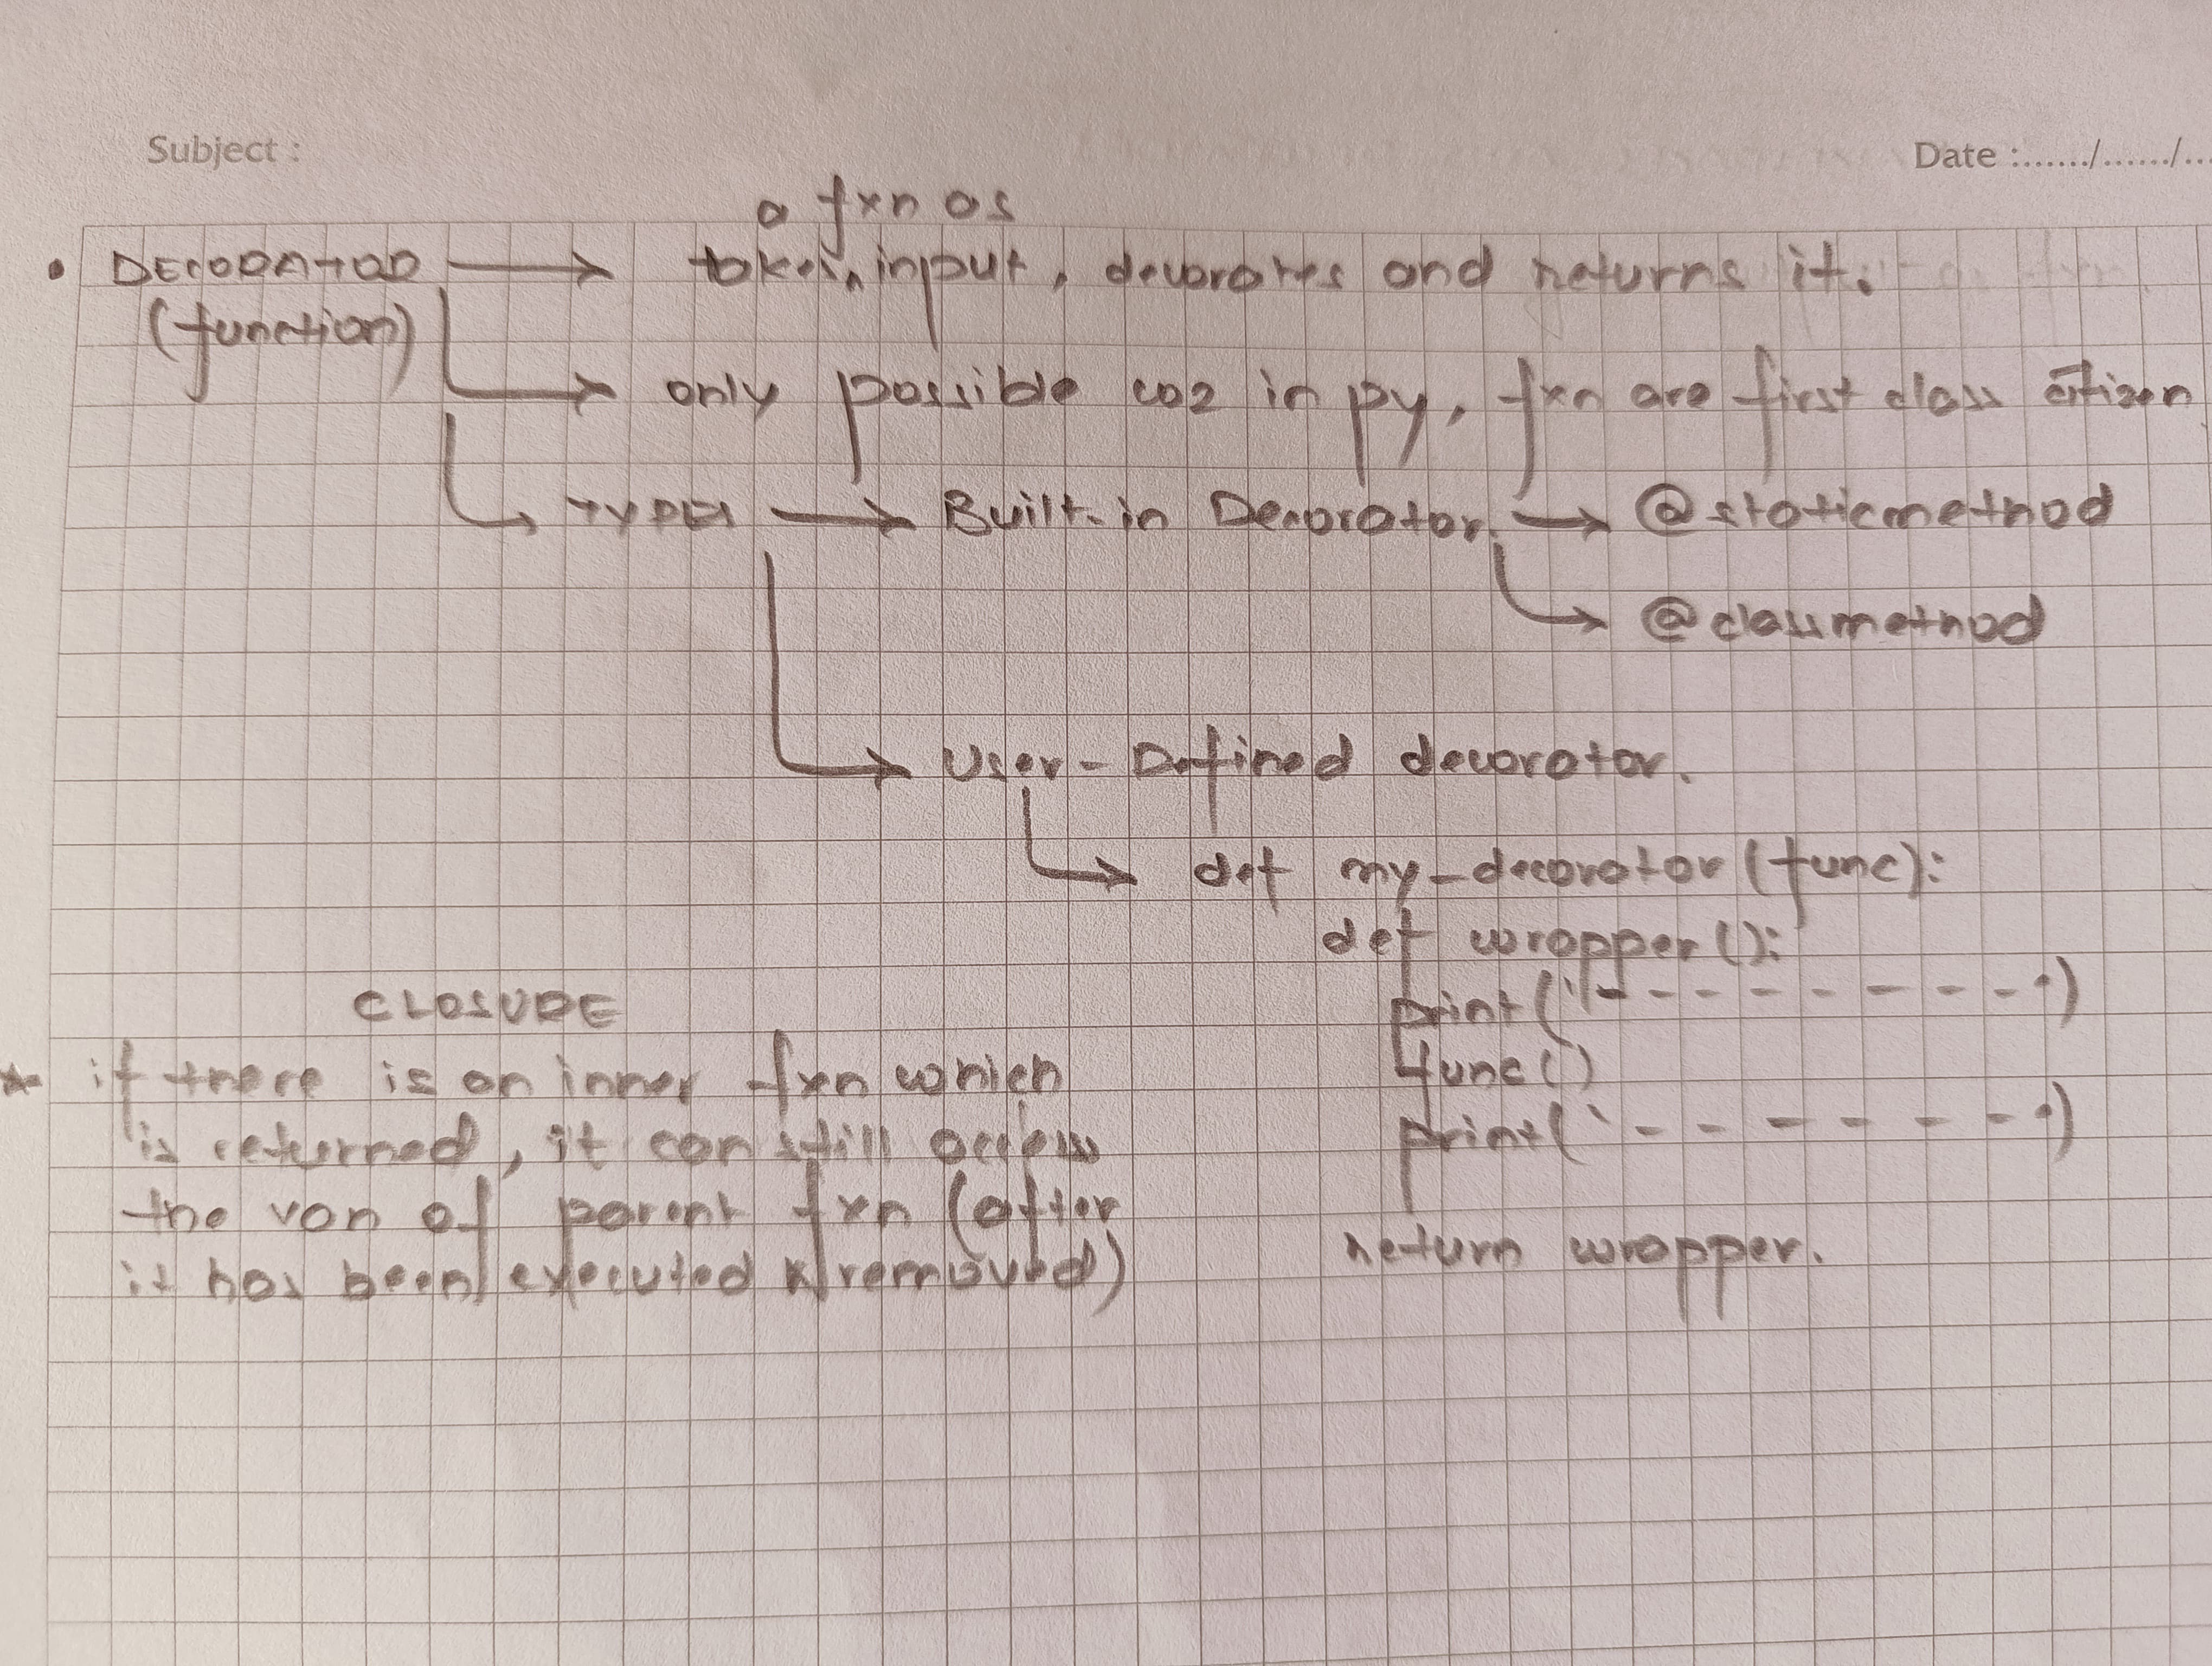 Subject :
Date :....../....../...
a fxn as
• DECORATOR → takes, input, decorates and returns it.
(function)
→ only possible coz in py, fxn are first class citizen
→ TYPES → Built-in Decorator. → @staticmethod
→ @classmethod
→ User-Defined decorator.
→ def my_decorator(func):
def wrapper():
print('- - - - - - - - -')
func()
print('- - - - - - -')
return wrapper.
CLOSURE
* if there is an inner fxn which
is returned, it can still access
the var of parent fxn (after
it has been executed & removed)